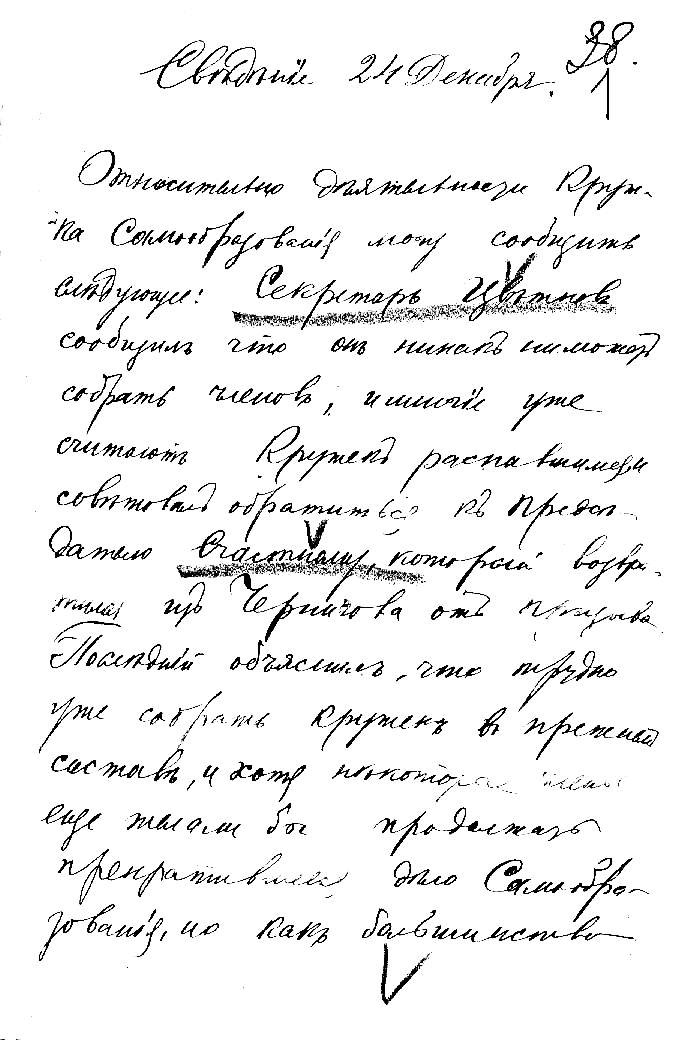 38.
Свѣдѣніе 24 Декабря.
Относительно дѣятельности Круж-
ка Самообразованія могу сообщить
слѣдующее: Секретарь Цвѣтковъ
сообщилъ что онъ никакъ не можетъ
собрать членовъ, и многіе уже
считаютъ Кружекъ распавшимся
совѣтовалъ обратиться къ предсѣ-
дателю Счастному, который возвра-
тился изъ Чернигова отъ призыва
Послѣдній объяснилъ, что трудно
уже собрать кружекъ въ прежнемъ
составѣ, и хотя нѣкоторые члены
еще желали бы продолжать
прекратившееся дѣло Самообра-
зованія, но какъ большинство